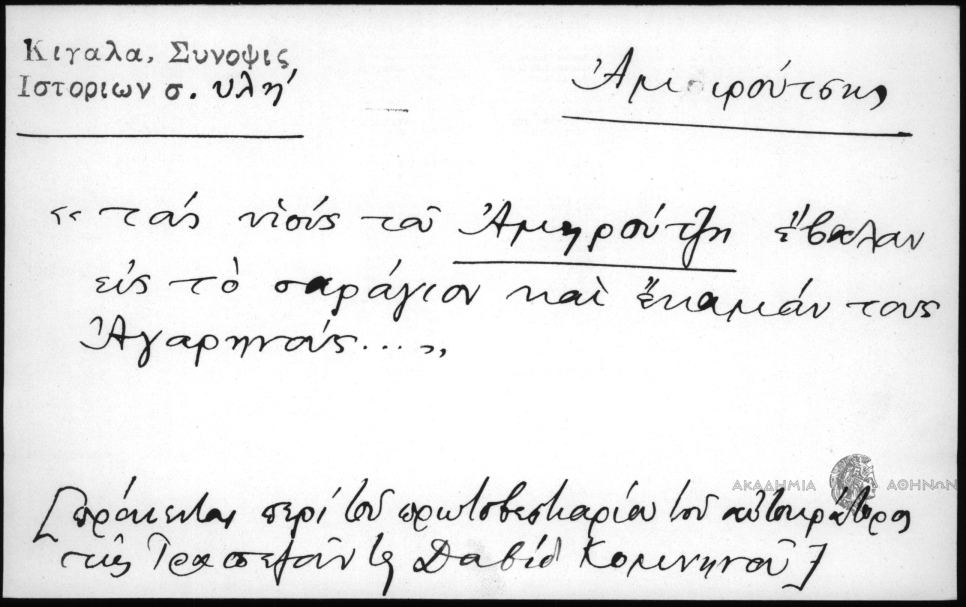 Κιγαλα, Συνοψις
Ιστοριων σ. υλη'
Ἀμοιρούτσης
« τούς υἱούς τοῦ Ἀμηρούτζη ἔβαλαν
εἰς τὸ σαράγιον καὶ ἔκαμάν τους
Ἀγαρηνούς... »
ΑΚΑΔΗΜΙΑ ΑΘΗΝΩΝ
[πρόκειται περί τοῦ πρωτοβεστιαρίου τοῦ αὐτοκράτορος
τῆς Τραπεζοῦντος Δαβίδ Κομνηνοῦ]